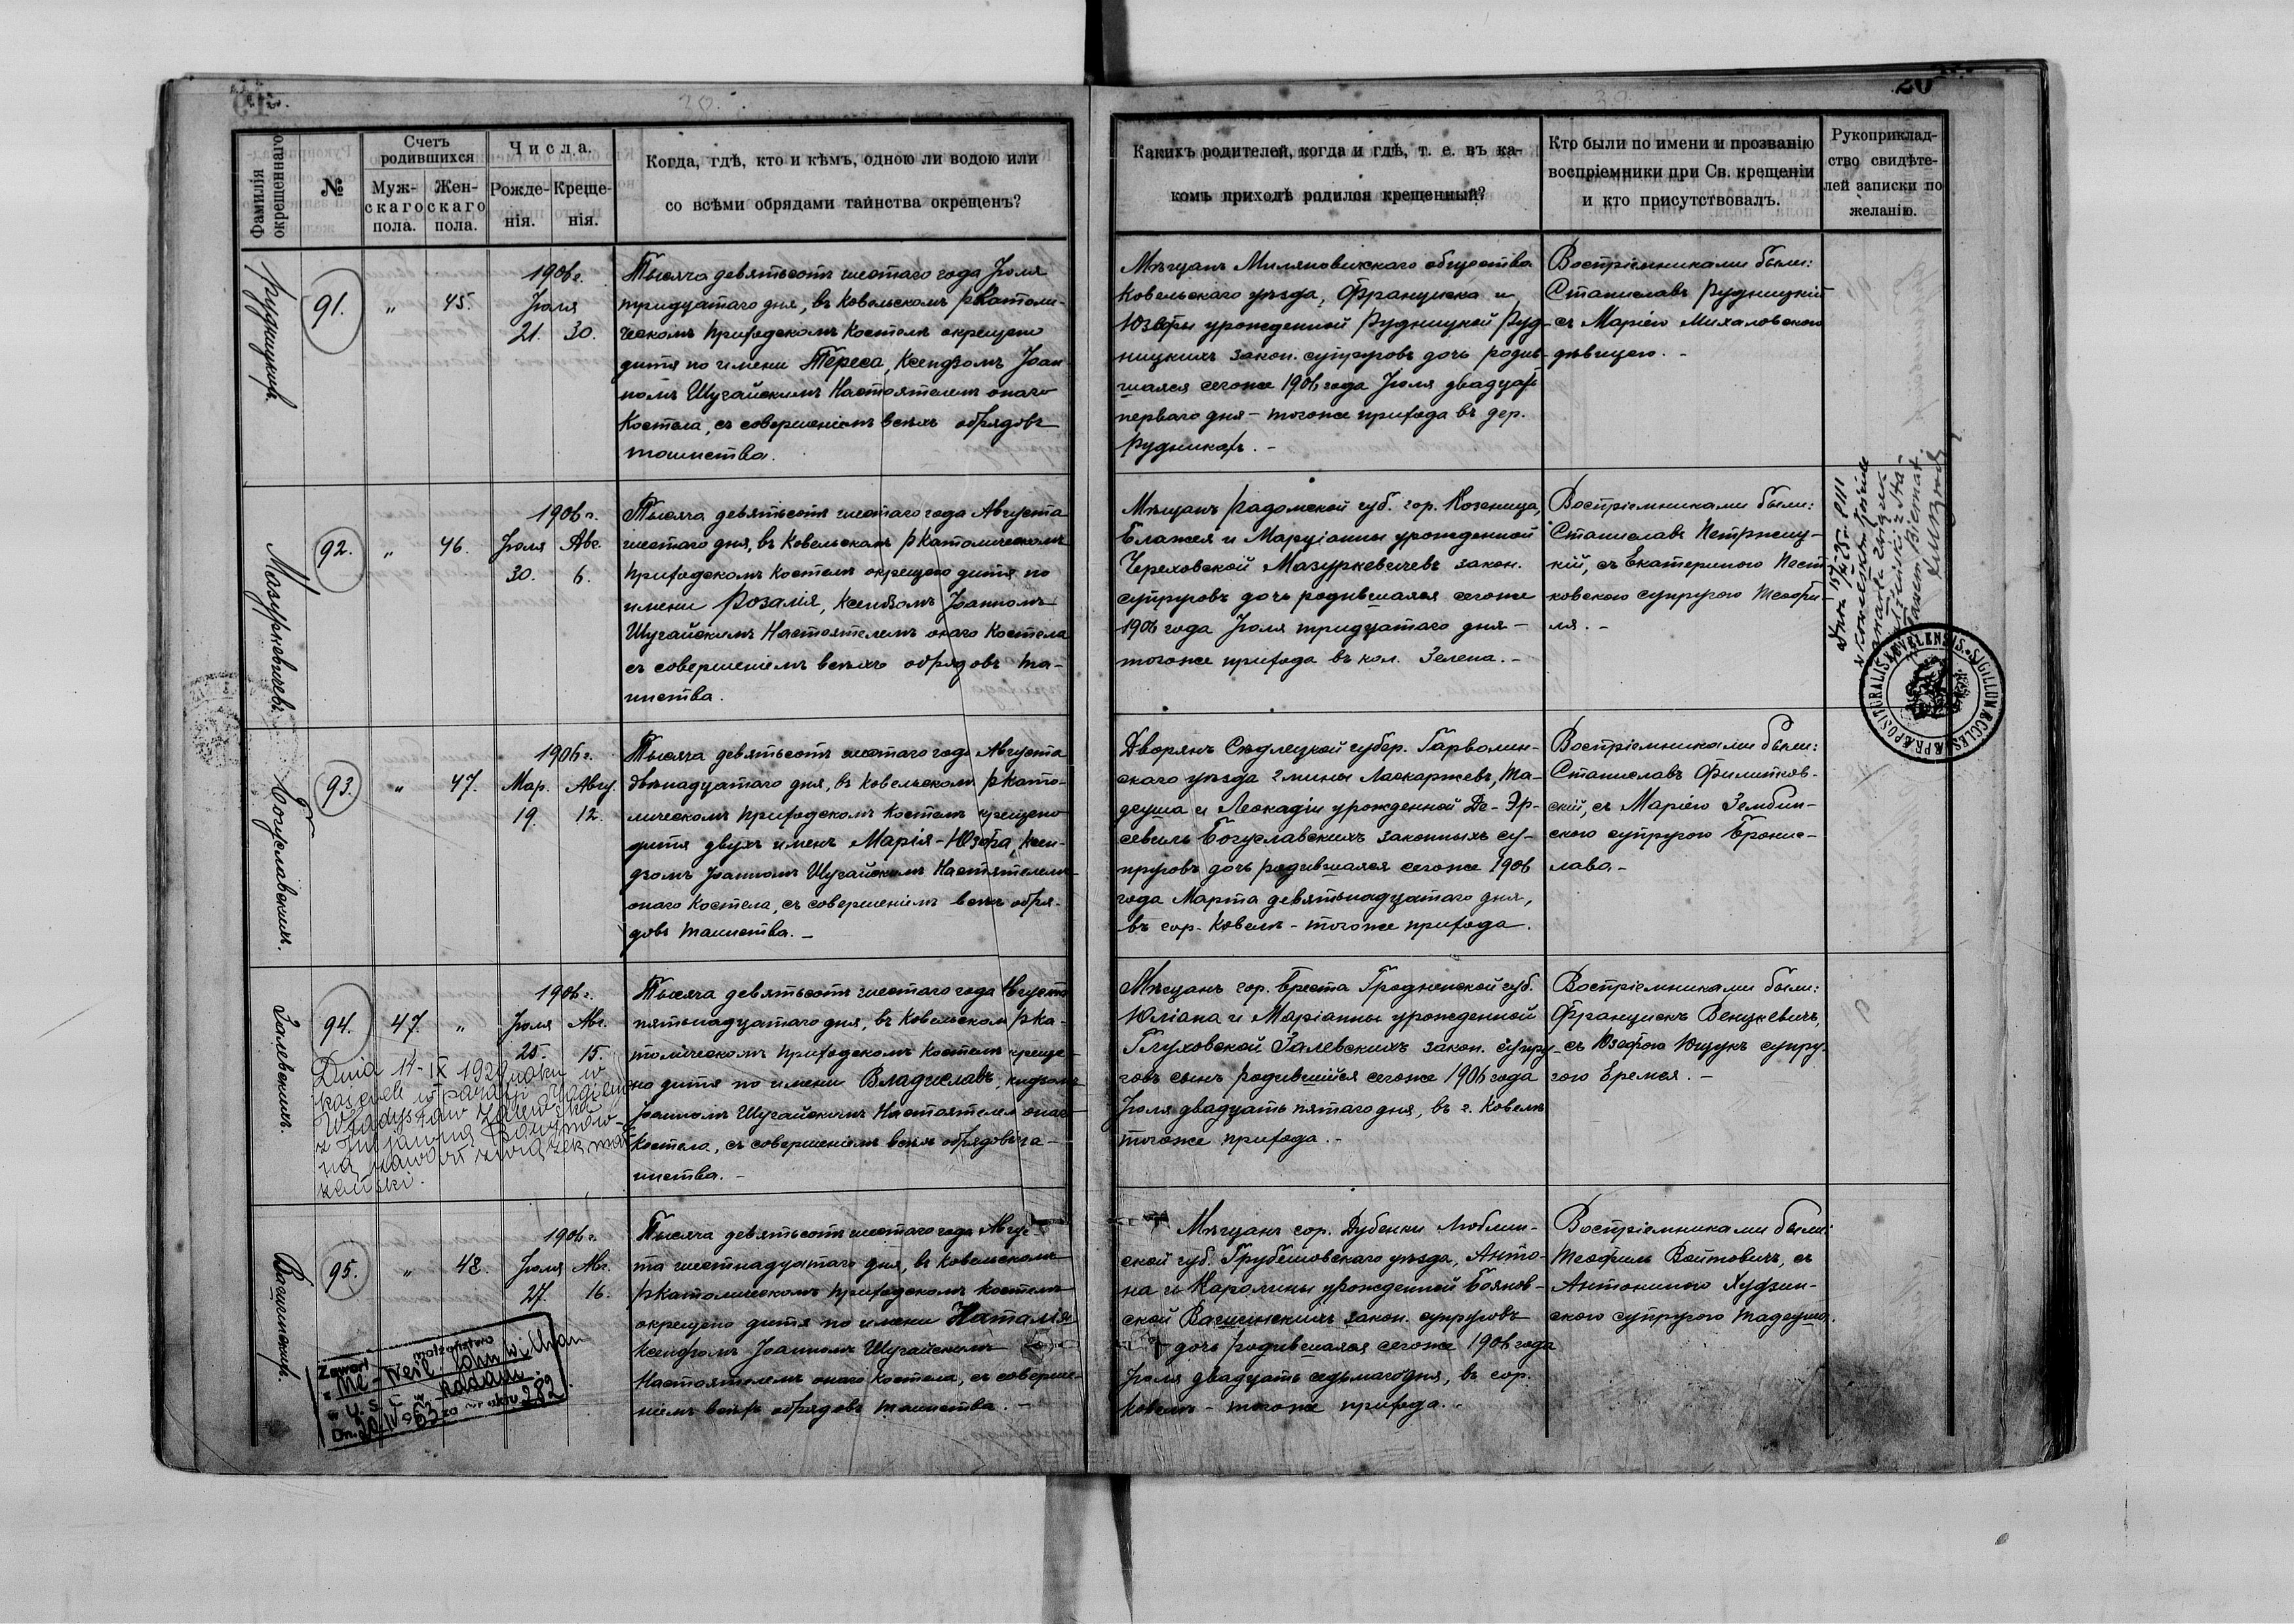 20
Фамилія окрещеннаго.
№
Счетъ родившихся
Муж-
скаго
пола.
Жен-
скаго
пола.
Числа.
Рожде-
нія.
Креще-
нія.
Когда, гдѣ, кто и кѣмъ, одною ли водою или
со всѣми обрядами таинства окрещенъ?
Какихъ родителей, когда и гдѣ, т. е. въ ка-
комъ приходѣ родился крещенный?
Кто были по имени и прозванію
воспріемники при Св. крещеніи
и кто присутствовалъ.
Рукоприклад-
ство свидѣте-
лей записки по
желанію.
Рудницкихъ.
91.
"
45.
1906 г.
Іюля
21. 30.
Тысяча девятьсотъ шестаго года Іюля
тридцатаго дня, въ Ковельскомъ РКатоли-
ческомъ Приходскомъ Костелѣ окрещено
дитя по имени Тереса, Ксендзомъ Іоан-
номъ Шугайскимъ Настоятелемъ онаго
Костела, съ совершеніемъ всѣхъ обрядовъ
таинства.
Мѣщанъ Миляновичскаго общества
Ковельскаго уѣзда, Франциска и
Юзефы урожденной Рудницкой Руд-
ницкихъ закон. супруговъ дочь родив-
шаяся сегоже 1906 года Іюля двадцать
перваго дня – тогоже прихода въ дер.
Рудникахъ. –
Воспріемниками были:
Станиславъ Рудницкій
съ Маріею Михаловскою
дѣвицею. –
Мазуркевичевъ.
92.
"
46.
1906 г.
Іюля Авг.
30. 6.
Тысяча девятьсотъ шестаго года Августа
шестаго дня, въ Ковельскомъ РКатолическомъ
Приходскомъ Костелѣ окрещено дитя по
имени Розалія, Ксендзомъ Іоанномъ
Шугайскимъ Настоятелемъ онаго Костела
съ совершеніемъ всѣхъ обрядовъ та-
инства.
Мѣщанъ Радомской губ. гор. Козеница,
Блажея и Маріанны урожденной
Череховской Мазуркевичевъ закон.
супруговъ дочь родившаяся сегоже
1906 года Іюля тридцатаго дня –
тогоже прихода въ кол. Зелена. –
Воспріемниками были:
Станиславъ
кій, съ Екатериною
ковскою супругою Теофи-
ля. –
SIGILLUM ECCLESIAE PRAEPOSITURALIS KOVELENSIS
Богуславскихъ.
93.
"
47.
1906 г.
Мар. Авгу.
19. 12.
Тысяча девятьсотъ шестаго года Августа
двѣнадцатаго дня, въ Ковельскомъ РКато-
лическомъ Приходскомъ Костелѣ крещено
дитя двухъ именъ Марія-Юзефа, Ксен-
дзомъ Іоанномъ Шугайскимъ Настоятелемъ
онаго Костела, съ совершеніемъ всѣхъ обря-
довъ таинства. –
Дворянъ Сѣдлецкой губер. Гарволин-
скаго уѣзда гмины Ласкаржевъ, Та-
деуша и Леокадіи урожденной Де-Эр-
севиль Богуславскихъ законныхъ су-
пруговъ дочь родившаяся сегоже 1906
года Марта девятьнадцатаго дня,
въ гор. Ковелѣ – тогоже прихода.
Воспріемниками были:
Станиславъ Филипков-
скій, съ Маріею Зембин-
скою супругою Бронис-
лава –
Залевскихъ.
94.
47.
"
1906 г.
Іюля Авг.
25. 15.
Dnia 14-IX 1929 roku w
kościele w parafji
Władysław Zalewski
z
na zawarł związek mał-
żeński.
Тысяча девятьсотъ шестаго года Августа
пятьнадцатаго дня, въ Ковельскомъ РКа-
толическомъ Приходскомъ Костелѣ креще-
но дитя по имени Владиславъ, ксдзомъ
Іоанномъ Шугайскимъ Настоятелем онаго
Костела, съ совершеніемъ всѣхъ обрядовъ та-
инства. –
Мѣщанъ гор. Бреста Гродненской губ.
Юліана и Маріанны урожденной
Глуховской Залевскихъ закон. супру-
говъ сынъ родившийся сегоже 1906 года
Іюля двадцать пятаго дня, въ г. Ковелѣ
тогоже прихода. –
Воспріемниками были:
Францискъ Венцкевичъ,
съ Юзефою Ющукъ супру-
гою Еремея. –
Вагинскихъ.
95.
"
48.
1906 г.
Іюля Авг.
27. 16.
Zawarł małżeństwo
z
w U.S.C. w Radom
Dn. 20.IV 963 za nr aktu 282
Тысяча девятьсотъ шестаго года Авгус-
та шестнадцатаго дня, въ Ковельскомъ
РКатолическомъ Приходскомъ Костелѣ
окрещено дитя по имени Наталія
Ксендзомъ Іоанномъ Шугайскимъ
Настоятелемъ онаго Костела, съ соверше-
ніемъ всѣхъ обрядовъ таинства. –
Мѣщанъ гор. Дубенки Люблин-
ской губ. Грубешовскаго уѣзда, Анто-
на и Каролины урожденной Боянов-
ской Вагинскихъ закон. супруговъ
дочь родившаяся сегоже 1906 года
Іюля двадцать седьмаго дня, въ гор.
Ковелѣ – тогоже прихода. –
Воспріемниками были:
Теофилъ Войтовичъ, съ
Антониною Худзин-
скою супругою Тадеуша.